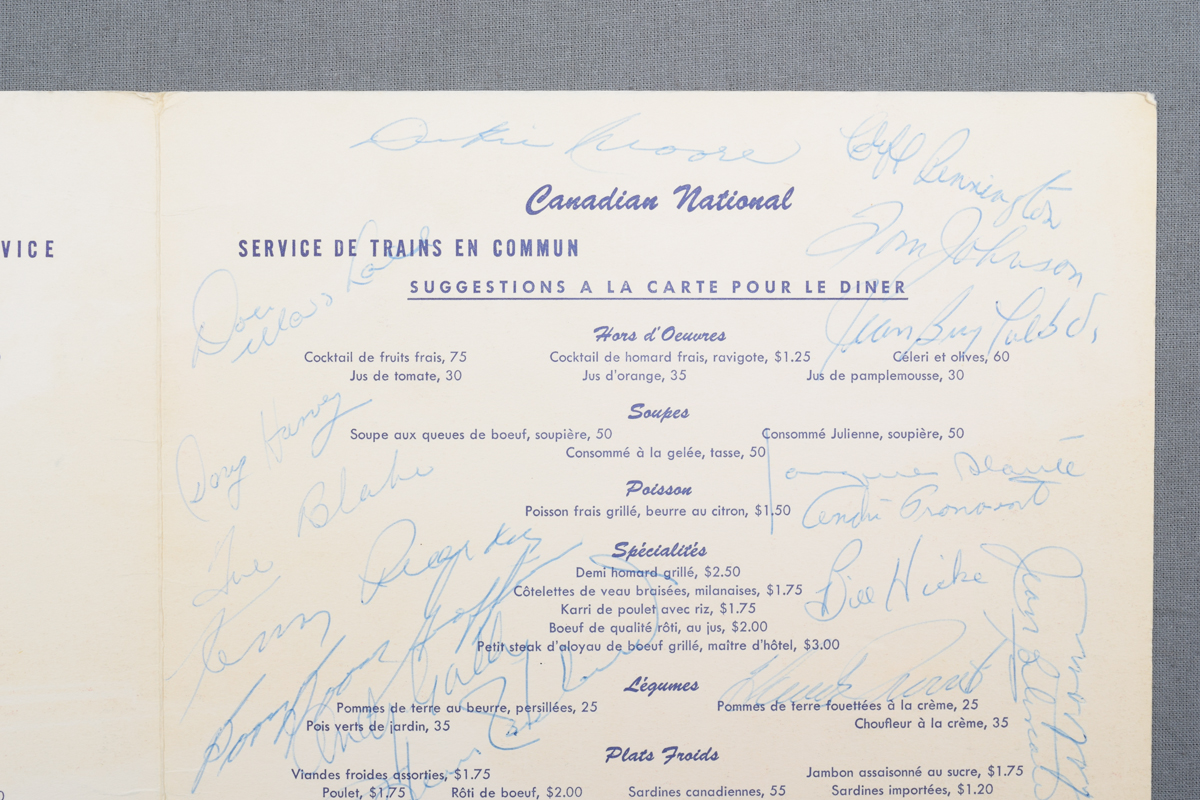 Dickie Moore
Cliff Pennington
Canadian National
VICE
SERVICE DE TRAINS EN COMMUN
Tom Johnson
SUGGESTIONS A LA CARTE POUR LE DINER
Don
Jean Guy Talbot
Hors d'Oeuvres
Cocktail de fruits frais, 75 Cocktail de homard frais, ravigote, $1.25 Céleri et olives, 60
Jus de tomate, 30 Jus d'orange, 35 Jus de pamplemousse, 30
Soupes
Soupe aux queues de boeuf, soupière, 50 Consommé Julienne, soupière, 50
Consommé à la gelée, tasse, 50
Doug Harvey
Jacques Plante
Toe Blake
Poisson
Poisson frais grillé, beurre au citron, $1.50
André Pronovost
Spécialités
Demi homard grillé, $2.50
Côtelettes de veau braisées, milanaises, $1.75
Karri de poulet avec riz, $1.75
Boeuf de qualité rôti, au jus, $2.00
Petit steak d'aloyau de boeuf grillé, maître d'hôtel, $3.00
Bill Hicke
Boom Boom Geoffrion
Légumes
Pommes de terre au beurre, persillées, 25 Pommes de terre fouettées à la crème, 25
Pois verts de jardin, 35 Choufleur à la crème, 35
Henri Richard
Plats Froids
Viandes froides assorties, $1.75 Jambon assaisonné au sucre, $1.75
Poulet, $1.75 Rôti de boeuf, $2.00 Sardines canadiennes, 55 Sardines importées, $1.20